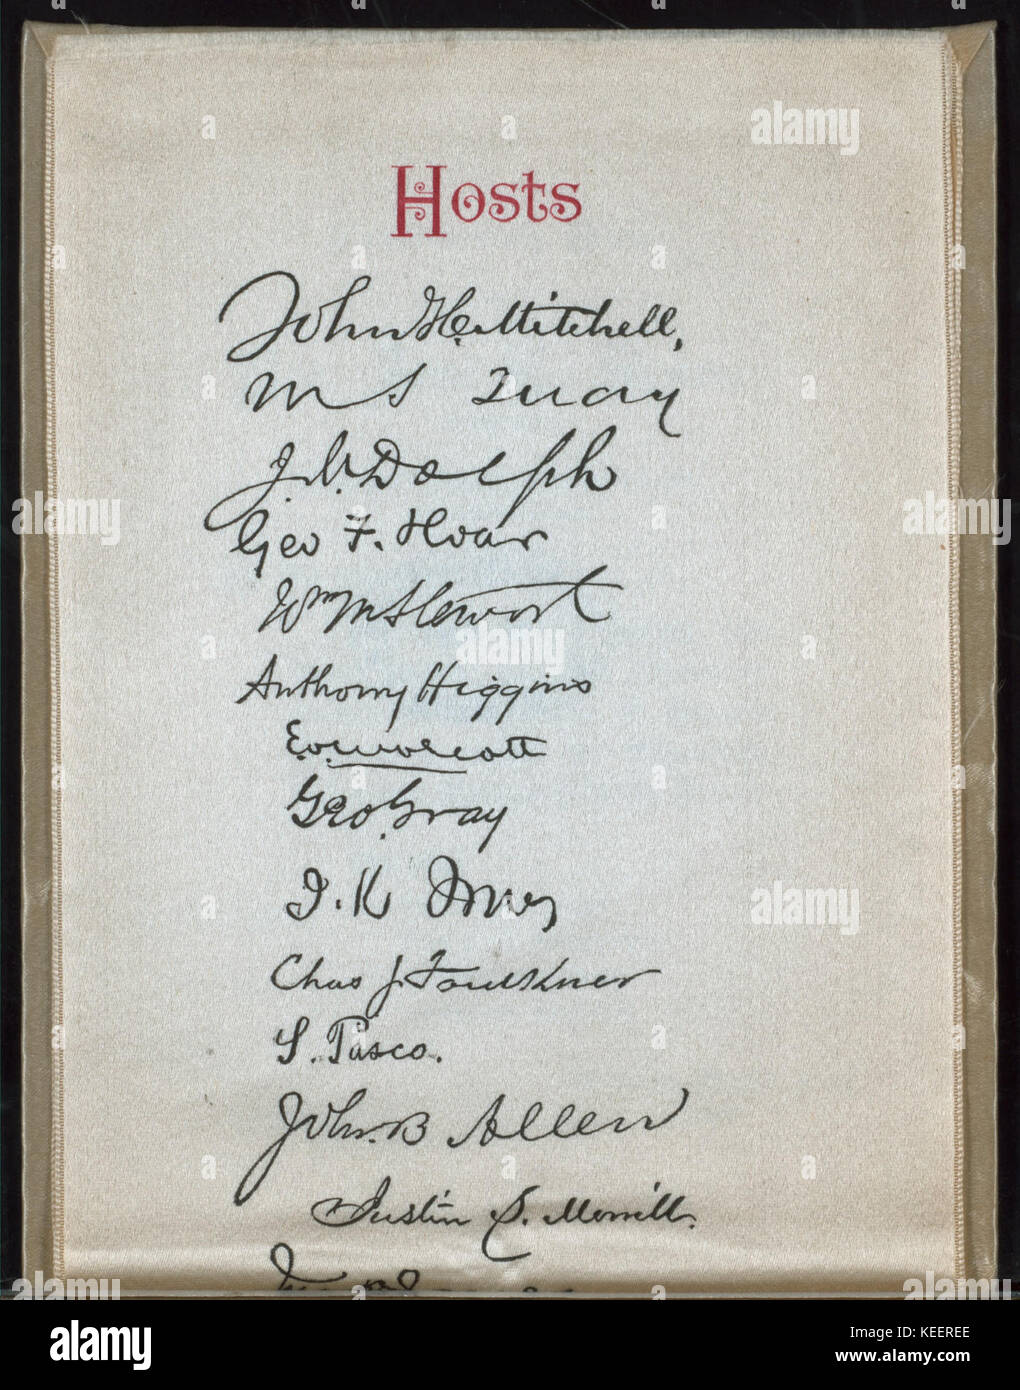 Hosts
John H. Mitchell,
M S Quay
J. N. Dolph
Geo F. Hoar
Wm M Stewart
Anthony Higgins
E. O. Wolcott
Geo. Gray
J. K Jones
Chas J. Faulkner
S. Pasco.
John. B Allen
Justin S. Morrill.
alamy
alamy
alamy
alamy
alamy
alamy
alamy
alamy
a alamy
Image ID: KEEREE
www.alamy.com